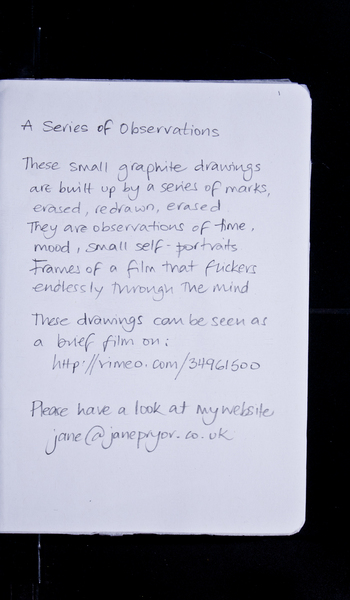 A Series of Observations
These small graphite drawings
are built up by a series of marks,
erased, redrawn, erased
They are observations of time,
mood, small self-portraits
Frames of a film that flickers
endlessly through the mind
These drawings can be seen as
a brief film on:
http://vimeo.com/34961500
Please have a look at my website
jane@janepryor.co.uk